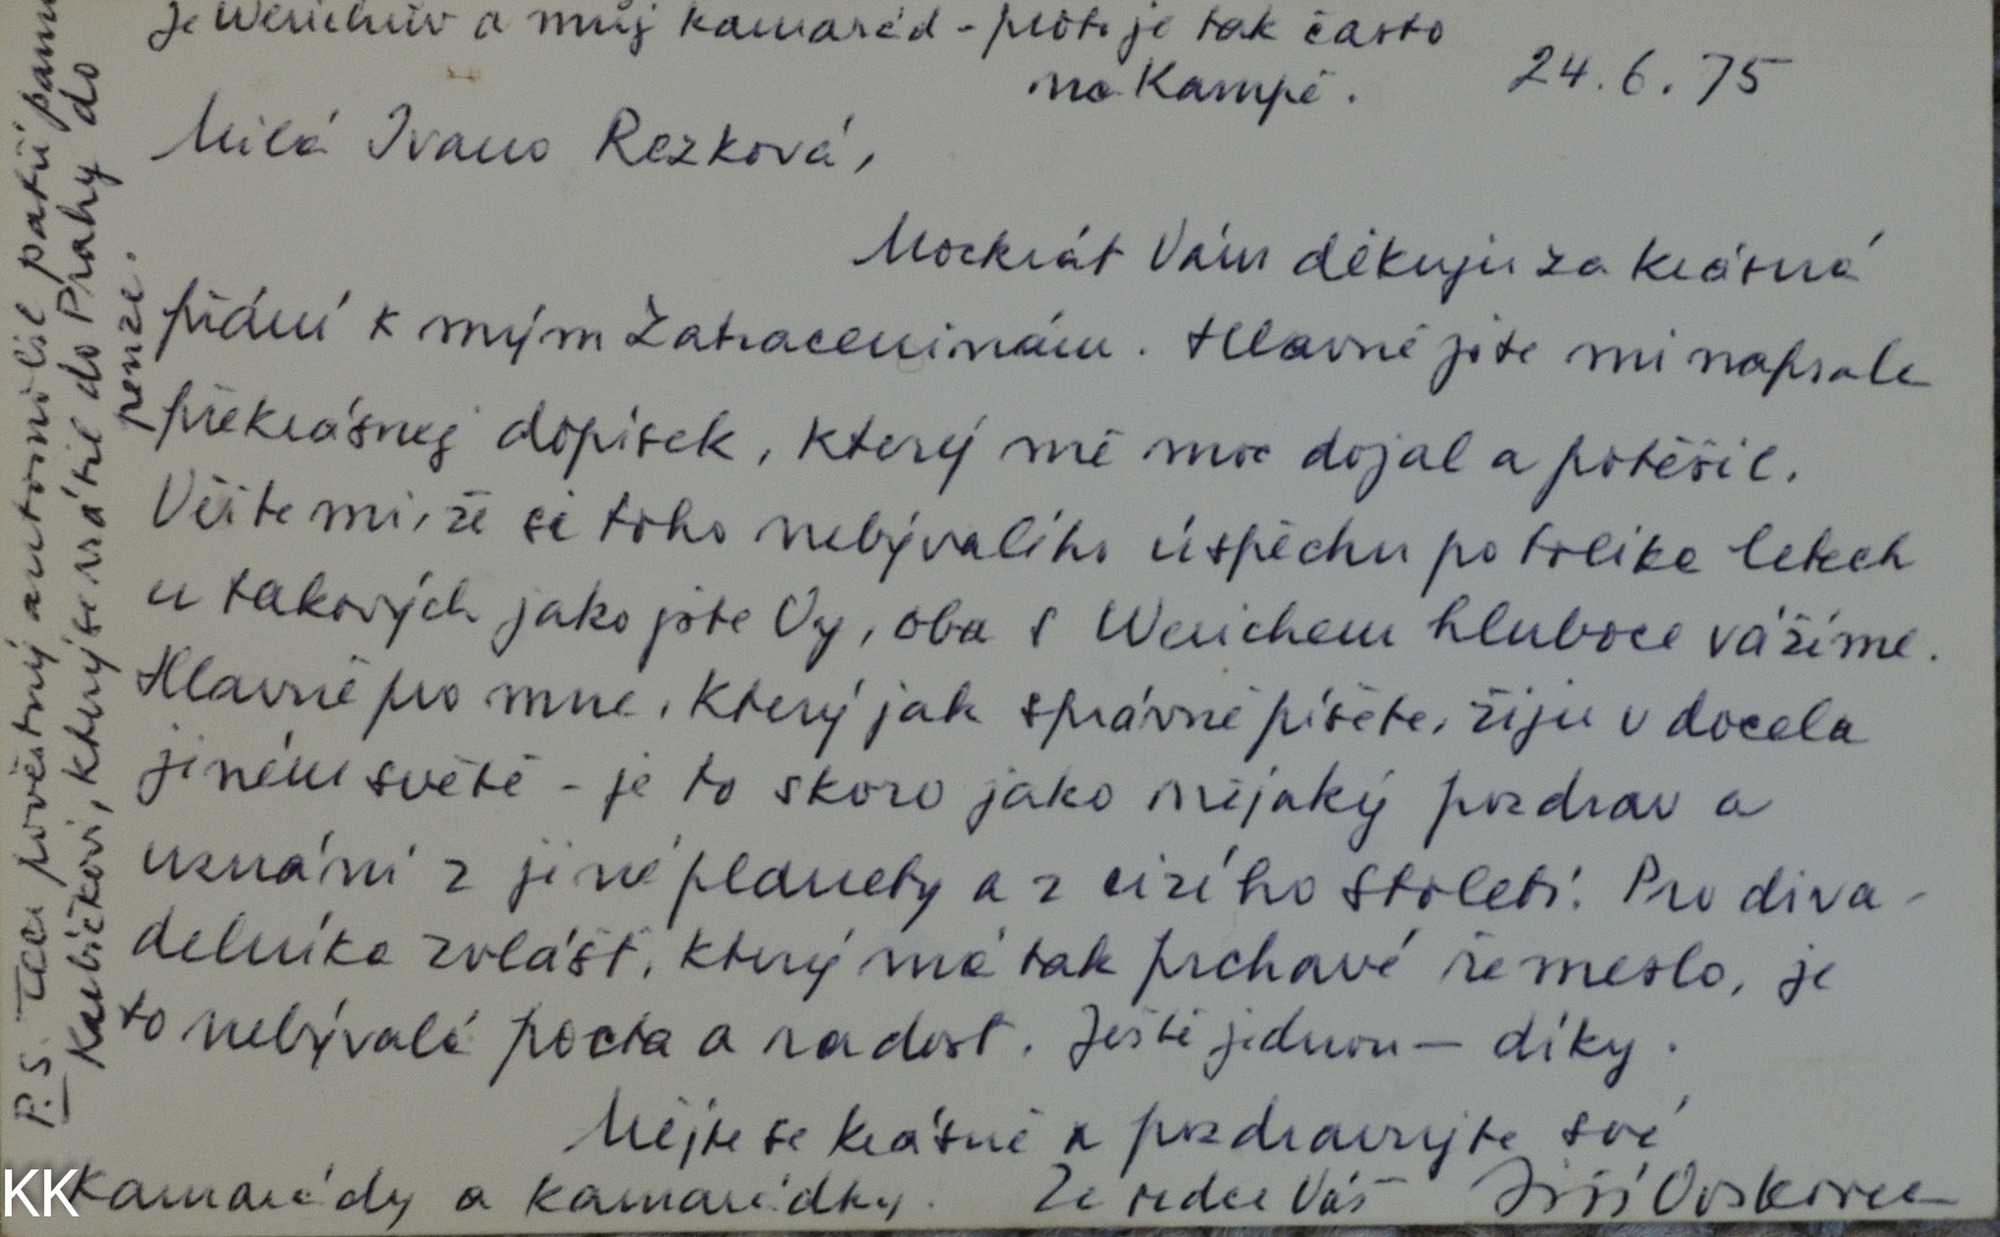 je Werichův a můj kamarád - proto je tak často
na Kampě.
24.6.75
Milá Ivano Rezková,
Mockrát Vám děkuju za krásná
přání k mým Zatraceninám. Hlavně jste mi napsala
překrásnej dopisek, kterej mě moc dojal a potěšil.
Věřte mi, že si toho nebývalího úspěchu po tolika letech
u takových jako jste Vy, oba s Werichem hluboce vážíme.
Hlavně pro mne, který jak správně píšete, žiju v docela
jiném světě - je to skoro jako nějaký pozdrav a
uznání z jiné planety a z cizího století. Pro diva-
delníka zvlášť, který má tak prchavé řemeslo, je
to nebývalá pocta a radost. Ještě jednou - díky.
Mějte se krásně a pozdravujte své
kamarády a kamarádky.
Ze srdce Váš Jiří Voskovec
P.S. Ten pověstný automobil patří panu
Kubičkovi, který se vrátil do Prahy do
penze.
KK